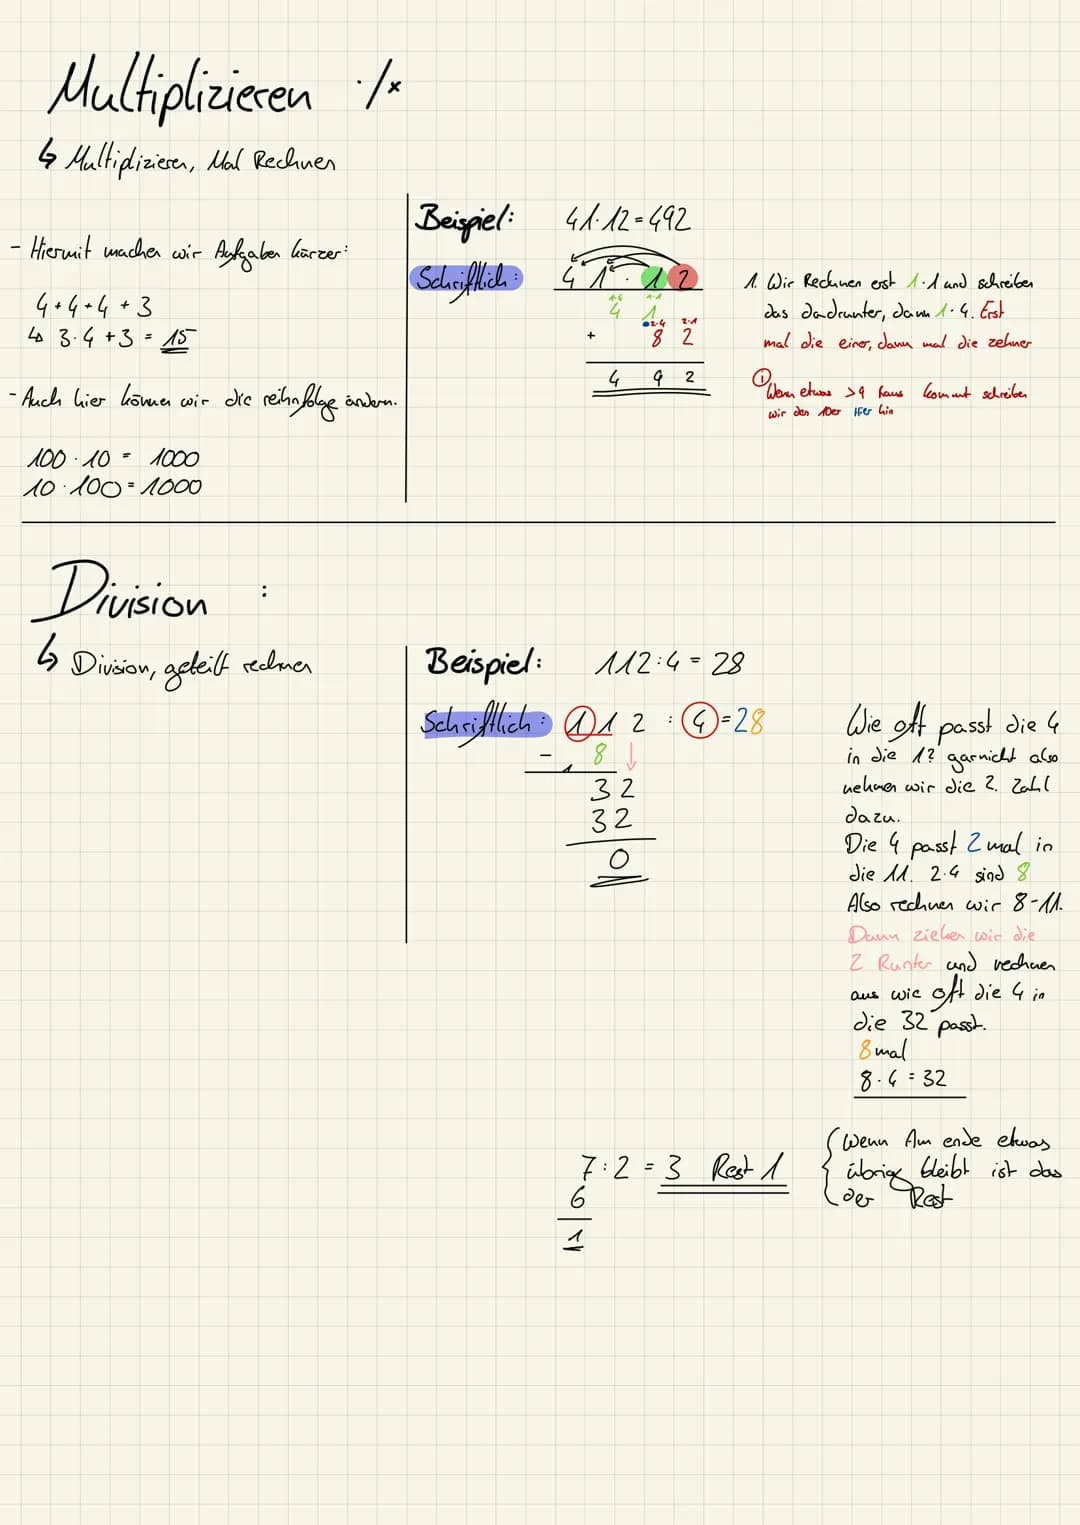 Multiplizieren ·/×
↳ Multiplizieren, Mal Rechnen
- Hiermit machen wir Aufgaben kürzer:
4+4+4+3
↳ 3·4+3 = 15
- Auch hier können wir die reihnfolge ändern.
100·10 = 1000
10·100 = 1000
Beispiel: 41·12=492
Schriftlich: 41·12
1·4 1·1
4 1
2·4 2·1
+ 8 2
4 9 2
1. Wir Rechnen erst 1·1 und schreiben
das dadrunter, dann 1·4. Erst
mal die einer, dann mal die zehner
① Wenn etwas >9 raus kommt schreiben
wir den 10er Hier hin
Division :
↳ Division, geteilt rechnen
Beispiel: 112:4 = 28
Schriftlich: 112 : 4 = 28
- 8 ↓
1
32
32
0
Wie oft passt die 4
in die 1? garnicht also
nehmen wir die 2. Zahl
dazu.
Die 4 passt 2 mal in
die 11. 2·4 sind 8
Also rechnen wir 8-11.
Dann ziehen wir die
2 Runter und rechnen
aus wie oft die 4 in
die 32 passt.
8 mal
8·4 = 32
7:2 = 3 Rest 1
6
1
Wenn Am ende etwas
übrig bleibt ist das
der Rest